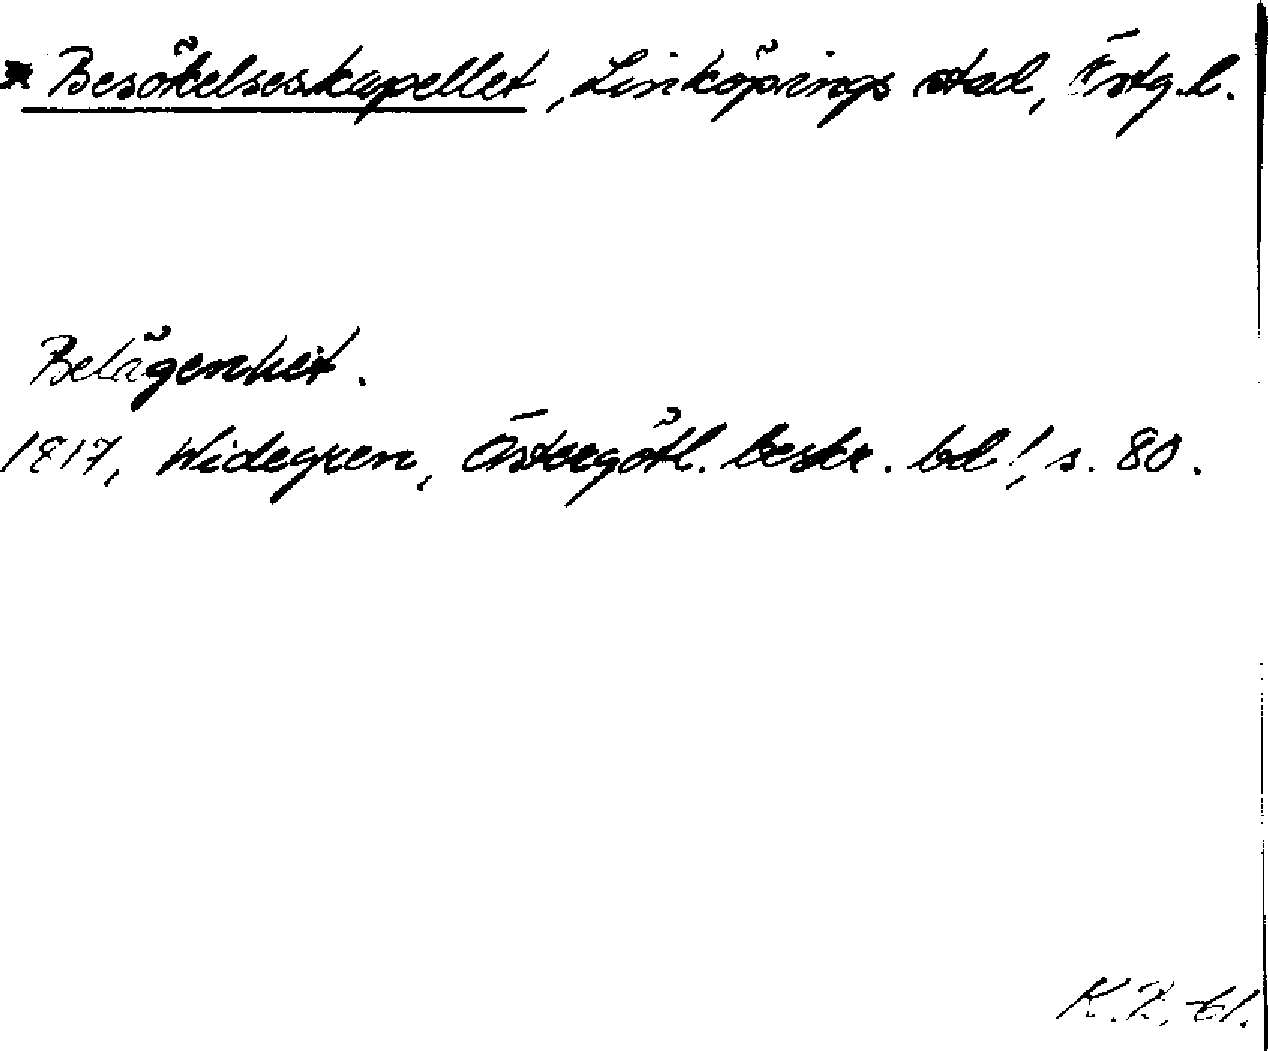 * Besökelseskapellet, Linköpings stad, Östg. l.
Belägenhet.
1817, Widegren, Östergötl. beskr. bd 1, s. 80.
K. R.